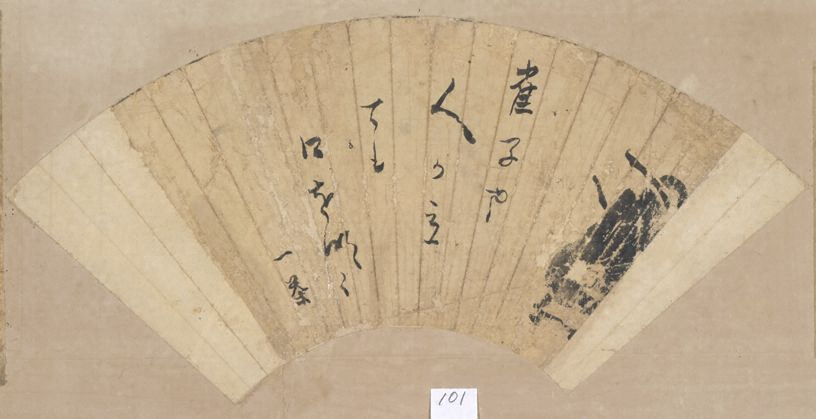 雀子や
人か立
ても
口を明く
一茶
101